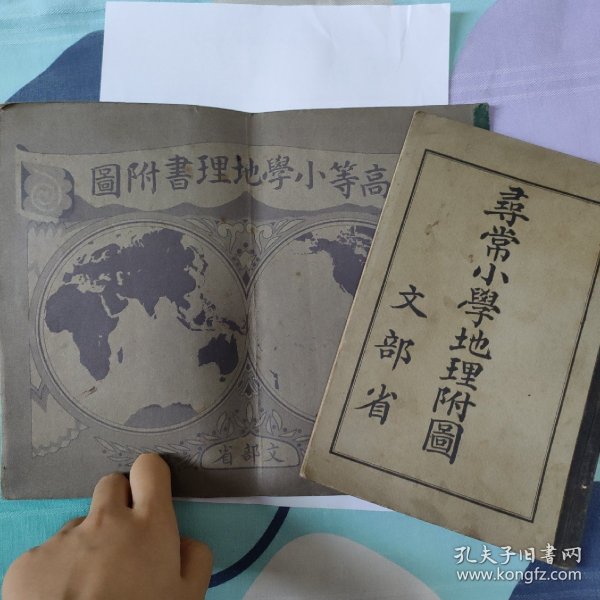 高等小學地理書附圖
文部省
尋常小學地理附圖
文部省
孔夫子旧书网
www.kongfz.com